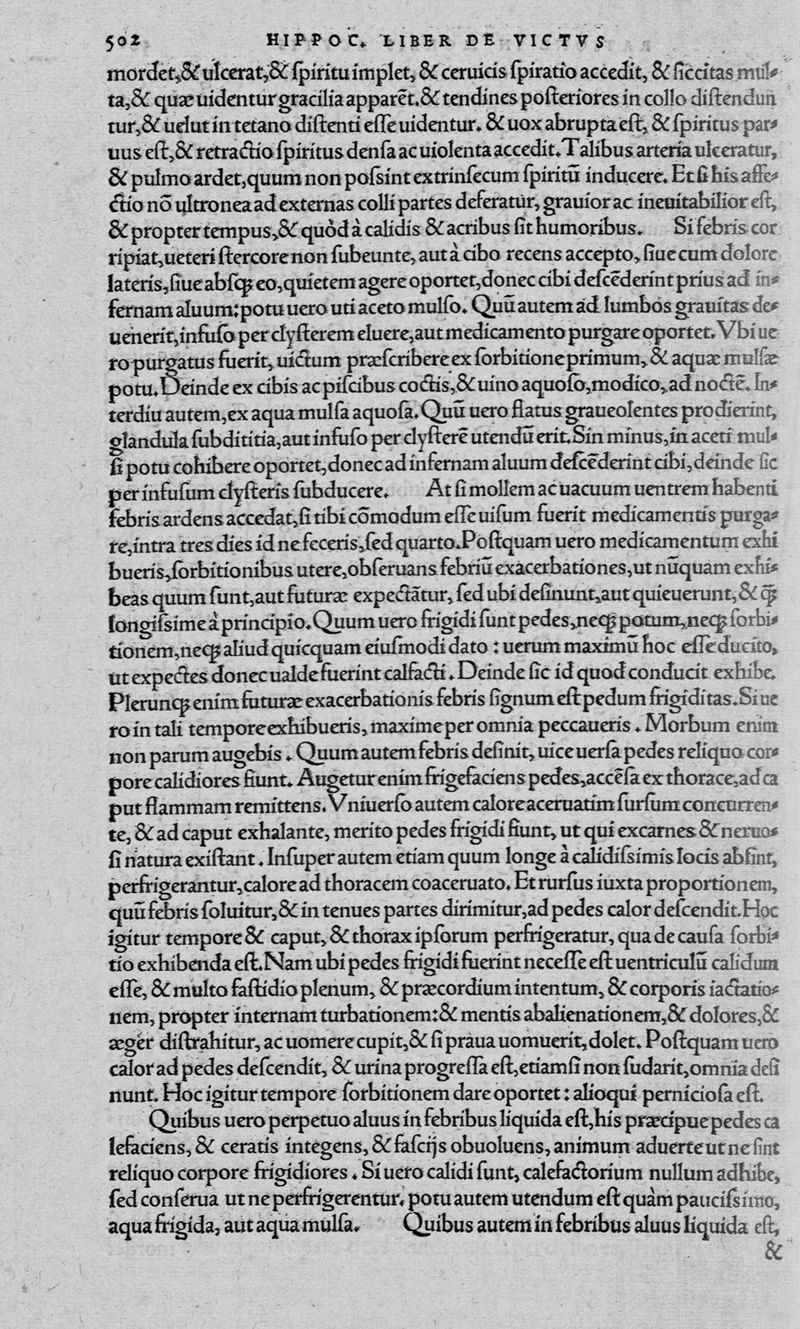 502 HIPPOC. LIBER DE VICTVS
mordet,& ulcerat,& ſpiritu implet, & ceruicis ſpiratio accedit, & ſiccitas mul⸗
ta,& quæ uidentur gracilia apparēt.& tendines poſteriores in collo diſtendun
tur,& uelut in tetano diſtenti eſſe uidentur. & uox abrupta eſt, & ſpiritus par⸗
uus eſt,& retractio ſpiritus denſa ac uiolenta accedit. Talibus arteria ulceratur,
& pulmo ardet,quum non poſsint extrinſecum ſpiritū inducere. Et ſi his affe⸗
ctio nō ultronea ad externas colli partes deferatur, grauior ac ineuitabilior eſt,
& propter tempus,& quòd à calidis & acribus fit humoribus. Si febris cor
ripiat,ueteri ſtercore non ſubeunte, aut à cibo recens accepto, ſiue cum dolore
lateris,ſiue abſq; eo,quietem agere oportet,donec cibi deſcēderint prius ad in⸗
fernam aluum:potu uero uti aceto mulſo. Quū autem ad lumbos grauitas de⸗
uenerit,infuſo per clyſterem eluere,aut medicamento purgare oportet. Vbi ue
ro purgatus fuerit, uictum præſcribere ex ſorbitione primum, & aquæ mulſæ
potu. Deinde ex cibis ac piſcibus coctis,& uino aquoſo,modico, ad noctē. In⸗
terdiu autem,ex aqua mulſa aquoſa. Quū uero flatus graueolentes prodierint,
glandula ſubdititia,aut infuſo per clyſterē utendū erit. Sin minus,in aceti mul⸗
ſi potu cohibere oportet,donec ad infernam aluum deſcēderint cibi,deinde ſic
per infuſum clyſteris ſubducere. At ſi mollem ac uacuum uentrem habenti
febris ardens accedat,ſi tibi cōmodum eſſe uiſum fuerit medicamentis purga⸗
re,intra tres dies id ne feceris,ſed quarto. Poſtquam uero medicamentum exhi
bueris,ſorbitionibus utere,obſeruans febriū exacerbationes,ut nūquam exhi⸗
beas quum ſunt,aut futuræ expectātur, ſed ubi deſinunt,aut quieuerunt,& q̄
longiſsime à principio. Quum uero frigidi ſunt pedes,neq; potum,neq; ſorbi⸗
tionem,neq; aliud quicquam eiuſmodi dato : uerum maximū hoc eſſe ducito,
ut expectes donec ualde fuerint calfacti. Deinde ſic id quod conducit exhibe.
Plerunq; enim futuræ exacerbationis febris ſignum eſt pedum frigiditas. Si ue
ro in tali tempore exhibueris, maxime per omnia peccaueris. Morbum enim
non parum augebis. Quum autem febris deſinit, uice uerſa pedes reliquo cor⸗
pore calidiores fiunt. Augetur enim frigefaciens pedes,accēſa ex thorace,ad ca
put flammam remittens. Vniuerſo autem calore aceruatim ſurſum concurren⸗
te, & ad caput exhalante, merito pedes frigidi fiunt, ut qui excarnes & neruo⸗
ſi natura exiſtant. Inſuper autem etiam quum longe à calidiſsimis locis abſint,
perfrigerantur,calore ad thoracem coaceruato. Et rurſus iuxta proportionem,
quū febris ſoluitur,& in tenues partes dirimitur,ad pedes calor deſcendit. Hoc
igitur tempore & caput, & thorax ipſorum perfrigeratur, qua de cauſa ſorbi⸗
tio exhibenda eſt. Nam ubi pedes frigidi fuerint neceſſe eſt uentriculū calidum
eſſe, & multo faſtidio plenum, & præcordium intentum, & corporis iactatio⸗
nem, propter internam turbationem:& mentis abalienationem,& dolores,&
æger diſtrahitur, ac uomere cupit,& ſi praua uomuerit,dolet. Poſtquam uero
calor ad pedes deſcendit, & urina progreſſa eſt,etiamſi non ſudarit,omnia deſi
nunt. Hoc igitur tempore ſorbitionem dare oportet : alioqui pernicioſa eſt.
Quibus uero perpetuo aluus in febribus liquida eſt,his præcipue pedes ca
lefaciens, & ceratis integens, & faſcijs obuoluens, animum aduerte ut ne ſint
reliquo corpore frigidiores. Si uero calidi ſunt, calefactorium nullum adhibe,
ſed conſerua ut ne perfrigerentur. potu autem utendum eſt quàm pauciſsimo,
aqua frigida, aut aqua mulſa. Quibus autem in febribus aluus liquida eſt,
&